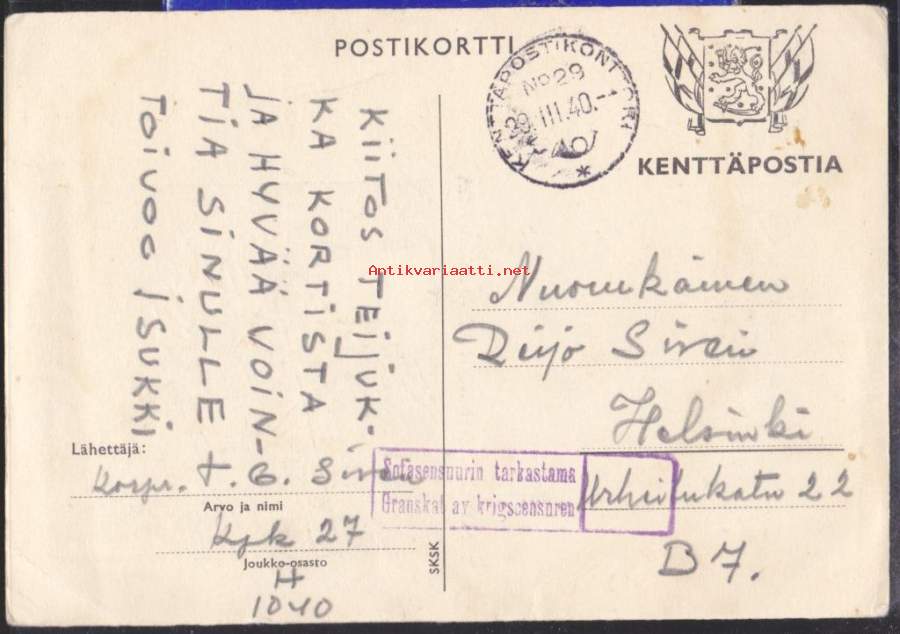 POSTIKORTTI
KENTTÄPOSTIKONTTORI
No 29
29.III.40.
KENTTÄPOSTIA
KiiTOS TEijUK-
KA KORTISTA
jA HYVÄÄ VOIN-
TIA SINULLE
TOIVOO jSUKKI
Antikvariaatti.net
Helsinki
Urheilukatu 22
B 7.
Lähettäjä:
Korpr. T. G. Siren
Arvo ja nimi
Kpk 27
Joukko-osasto
H
1040
SKSK
Sotasensuurin tarkastama
Granskat av krigscensuren